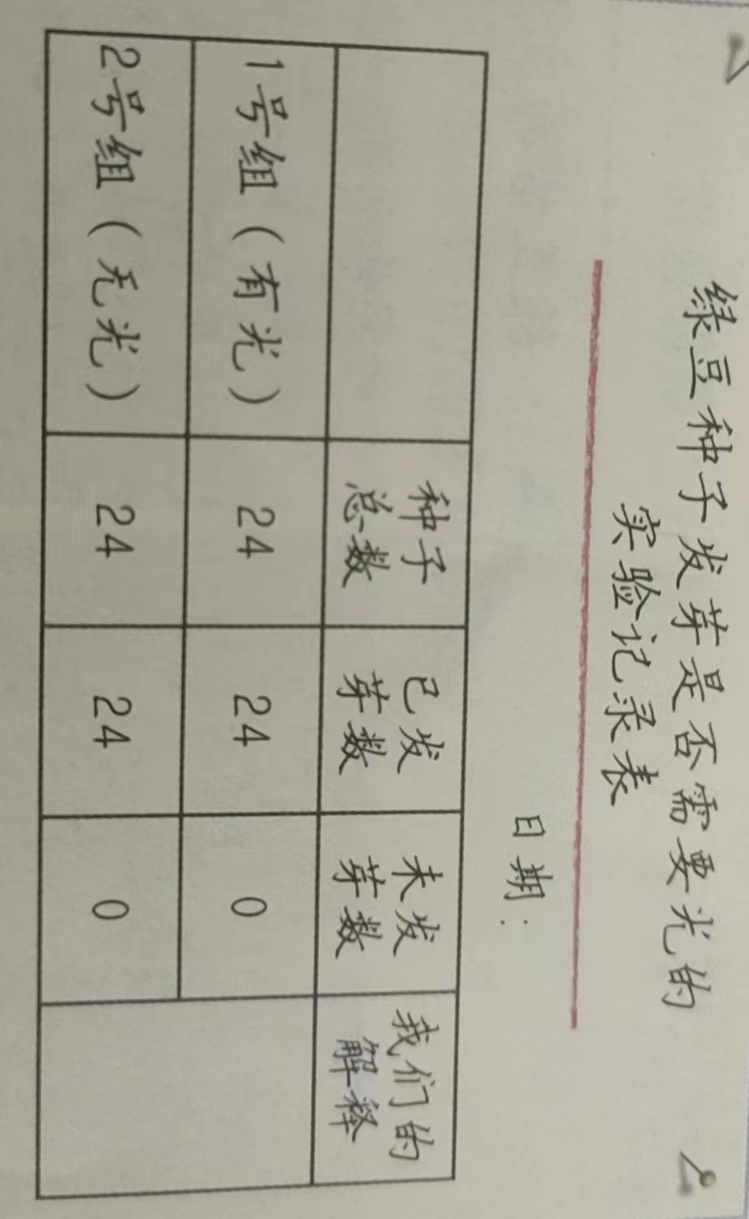 绿豆种子发芽是否需要光的
实验记录表
日期：
种子总数 已发芽数 未发芽数 我们的解释
1号组（有光） 24 24 0
2号组（无光） 24 24 0